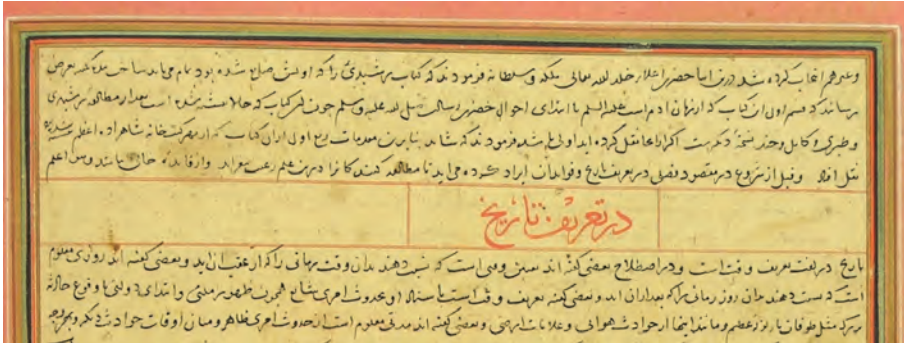 وغیرهم انتخاب کرده شد درین اثنا حضرت اعلی خلد الله تعالی ملکه و سلطانه فرمودند که کتاب رشیدی را که اولش ضایع شده بود تمام می‌باید ساخت بنده کمینه بعرض
رسانید که قسم اول آن کتاب که از زمان آدم است علیه السلم تا ابتدای احوال حضرت رسالت صلی الله علیه وسلم چون در کتاب که حالا شده است بعد از مطالعه رشیدی
و طبری و کامل و چند نسخهٔ دیگر است اگر از آنجا نقل کرده آید اولی باشد فرمودند که شاید بنابرین مقدمات ربع اول از آن کتاب که از بهر کتب خانه شاهزاده اعظم
نقل افتاد و قبل از شروع در مقصود فصلی در تعریف تاریخ و فواید آن ایراد کرده می‌آید تا مطالعه کنندگان را درین علم رغبت افزاید و از فایده خالی نماند
در تعریف تاریخ
تاریخ در لغت تعریف وقت است و در اصطلاح بعضی گفته اند تعیین وقتی است که نسبت دهند بدان وقت زمانی را که از عقب آن آید و بعضی گفته اند روزی معلوم
است که نسبت دهند بدان روز زمانی را که بعد از آن آید و بعضی گفته تعریف وقت است باسناد او بحدوث امری شایع همچون ظهور ملتی و ابتدای دولتی یا وقوع حادثهٔ
بزرگ مثل طوفان یا زلزله عظیم و مانند اینها از حوادث هوائی و علامات ارضی و بعضی گفته اند مدتی معلوم است از حدوث امری ظاهر و میان اوقات حوادث دیگر